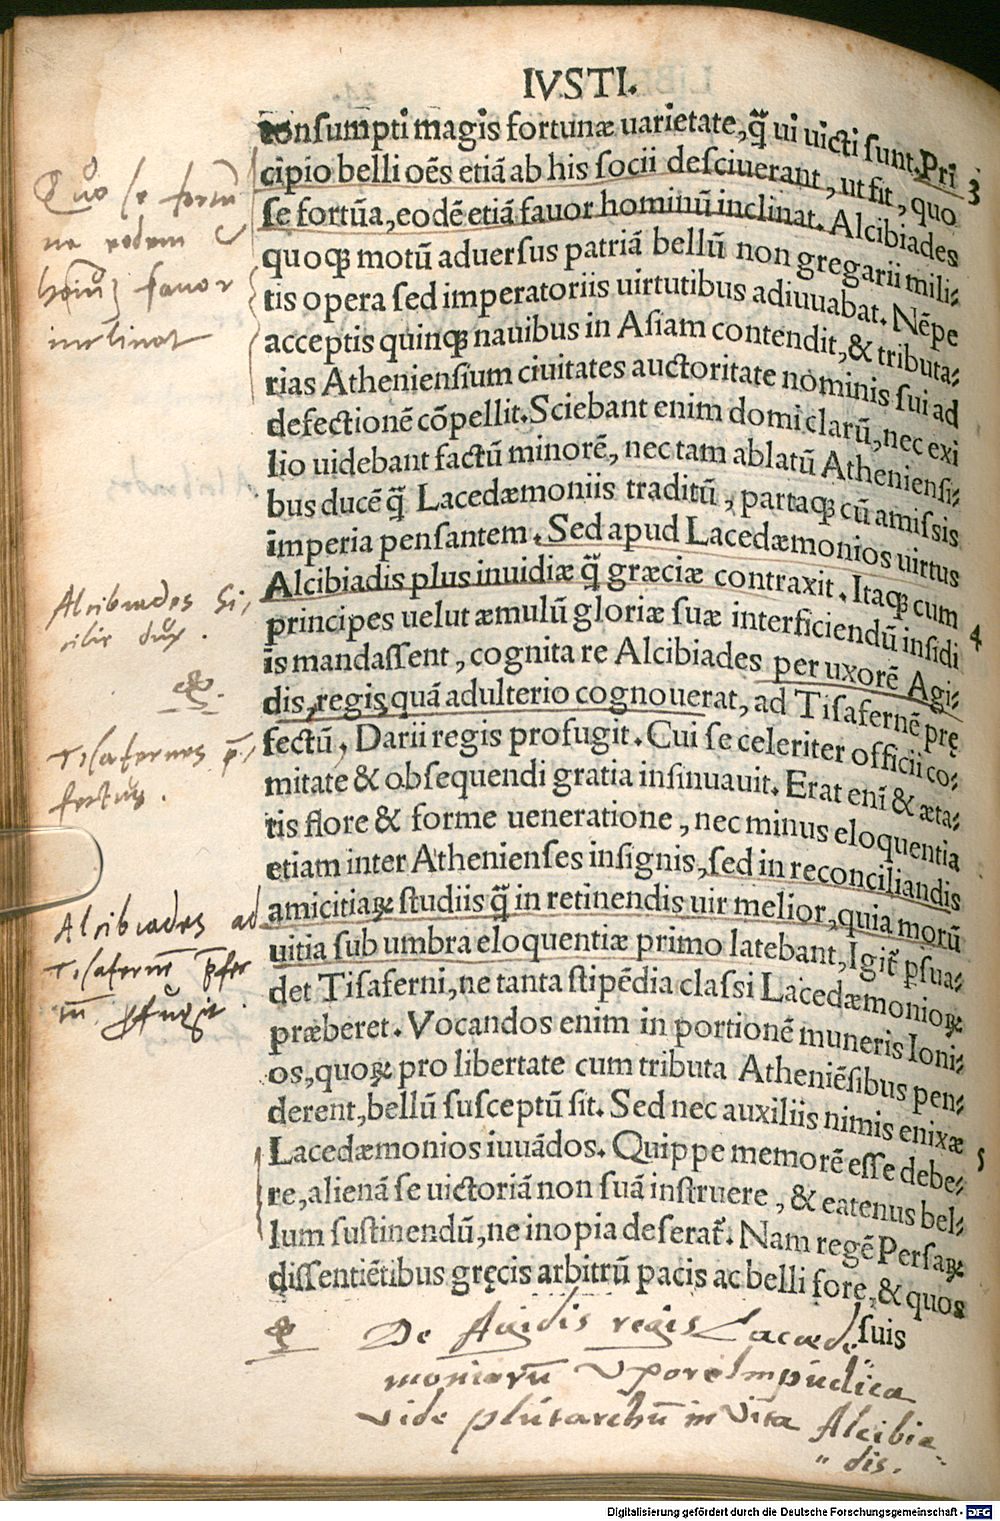 IVSTI.
consumpti magis fortunæ uarietate, q̃ ui uicti sunt. Prī
cipio belli oēs etiā ab his socii desciuerant, ut fit, quo
se fortūa, eodē etiā fauor hominū inclinat. Alcibiades
quoqꝫ motū aduersus patriā bellū non gregarii mili-
tis opera sed imperatoriis uirtutibus adiuuabat. Nēpe
acceptis quinqꝫ nauibus in Asiam contendit, & tributa-
rias Atheniensium ciuitates auctoritate nominis sui ad
defectionē cōpellit. Sciebant enim domi clarū, nec exi
lio uidebant factū minorē, nec tam ablatū Atheniensi-
bus ducē q̃ Lacedæmoniis traditū, partaqꝫ cū amissis
imperia pensantem. Sed apud Lacedæmonios uirtus
Alcibiadis plus inuidiæ q̃ græciæ contraxit. Itaqꝫ cum
principes uelut æmulū gloriæ suæ interficiendū insidi
is mandassent, cognita re Alcibiades per uxorē Agi-
dis, regis quā adulterio cognouerat, ad Tisafernē prę
fectū, Darii regis profugit. Cui se celeriter officii co-
mitate & obsequendi gratia insinuauit. Erat enī & æta-
tis flore & forme ueneratione, nec minus eloquentia
etiam inter Athenienses insignis, sed in reconciliandis
amicitiaꝝ studiis q̃ in retinendis uir melior, quia morū
uitia sub umbra eloquentiæ primo latebant, Igit̃ ꝑsua-
det Tisaferni, ne tanta stipēdia classi Lacedæmonioꝝ
præberet. Vocandos enim in portionē muneris Ioni-
os, quoꝝ pro libertate cum tributa Atheniēsibus pen-
derent, bellū susceptū sit. Sed nec auxiliis nimis enixæ
Lacedæmonios iuuādos. Quippe memorē esse debe-
re, alienā se uictoriā non suā instruere, & eatenus bel-
lum sustinendū, ne inopia deserat̃. Nam regē Persaꝝ
dissentiētibus gręcis arbitrū pacis ac belli fore, & quos
suis
3
4
5
Quo se fortu
na eodem
hoīuꝫ fauor
inclinat
Alcibiades Si,
cilie dux.
Tisafernes p̄,
fectus.
Alcibiades ad
Tisafernē p̄fec
tū ꝓfugit.
De Agidis regis Lacæde,
moniorū Vxore Impudica
vide plutarchū in Vita Alcibia
dis.
Digitalisierung gefördert durch die Deutsche Forschungsgemeinschaft - DFG